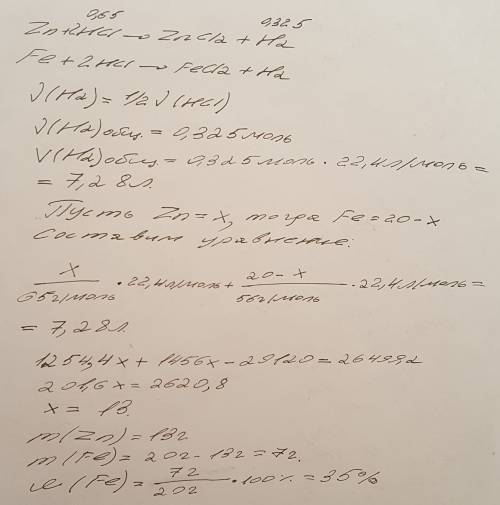 0,65 0,325
Zn+2HCl → ZnCl2 + H2
Fe+2HCl → FeCl2 + H2
ν(H2) = 1/2 ν(HCl)
ν(H2)общ. = 0,325моль
V(H2)общ. = 0,325моль · 22,4л/моль =
= 7,28л.
Пусть Zn = x, тогда Fe = 20-x
Составим уравнение:
x 20-x
65г/моль · 22,4л/моль + 56г/моль · 22,4л/моль =
= 7,28л
1254,4x + 1456x - 29120 = 26499,2
201,6x = 2620,8
x = 13.
m(Zn) = 13г
m(Fe) = 20г - 13г = 7г.
ω(Fe) = 7г/20г · 100% = 35%